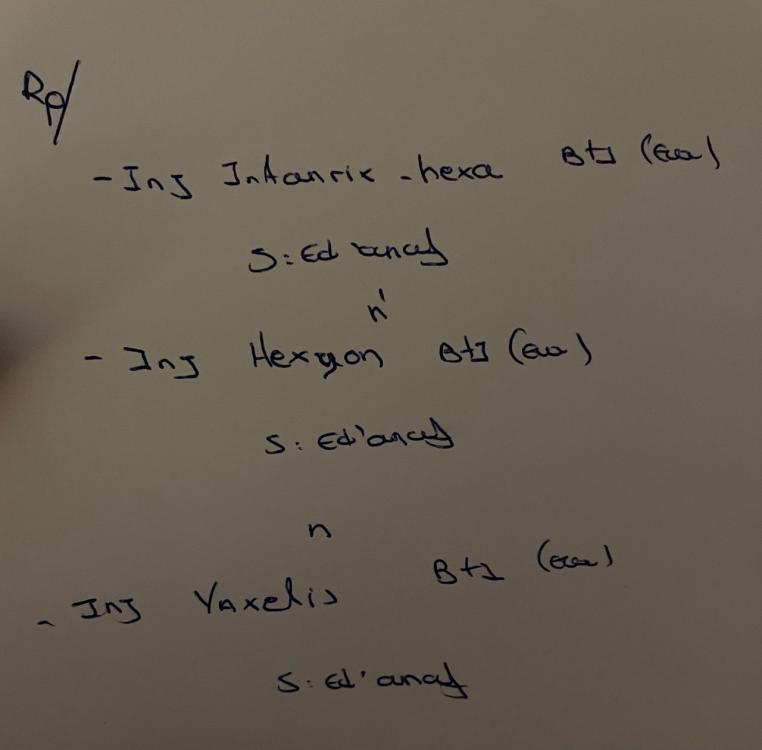 Rp/
- Inj Infanrix -hexa Bt1 (
S: Ed'anas
n'
- Inj Hexyon Bt1 (
S: Ed'anas
n
- Inj Vaxelis Bt1 (
S: Ed'anas